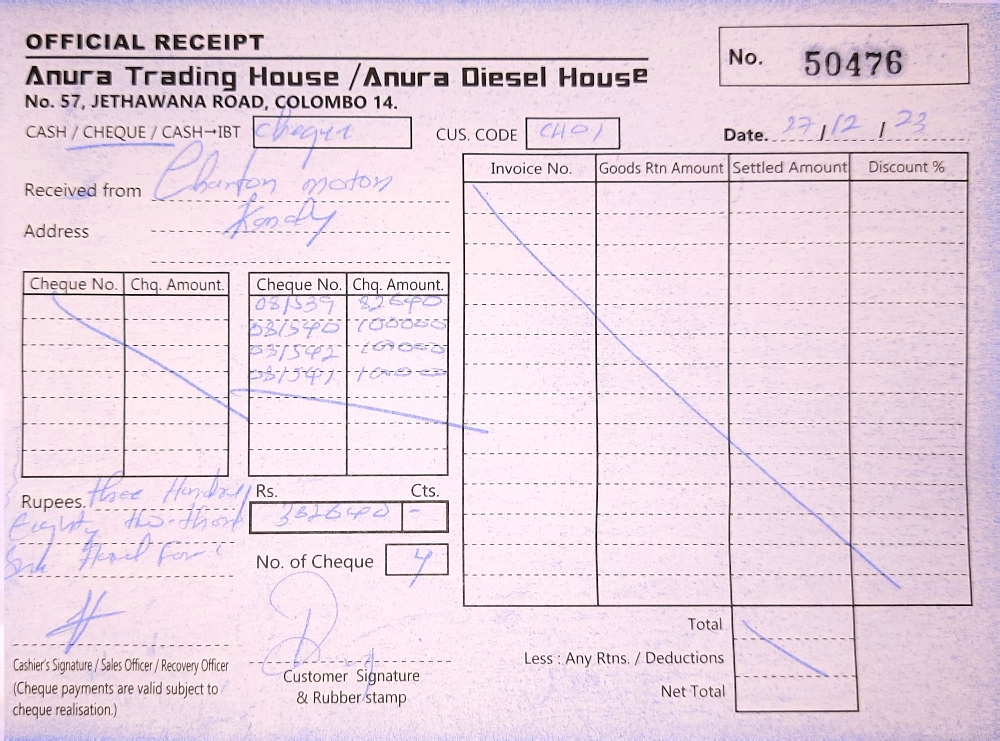 OFFICIAL RECEIPT
No. 50476
Anura Trading House /Anura Diesel House
No. 57, JETHAWANA ROAD, COLOMBO 14.
CASH / CHEQUE / CASH→IBT cheque CUS. CODE CH01 Date. 27/12/23
Received from motors
Address Kandy
Invoice No. Goods Rtn Amount Settled Amount Discount %
Cheque No. Chq. Amount. Cheque No. Chq. Amount.
081539 82640
081540 100000
081542 100000
081541 100000
Rupees. three Hundred
Eighty two thous
Rs. Cts.
382640 -
No. of Cheque 4
Total
Less : Any Rtns. / Deductions
Net Total
Cashier's Signature / Sales Officer / Recovery Officer
(Cheque payments are valid subject to
cheque realisation.)
Customer Signature
& Rubber stamp